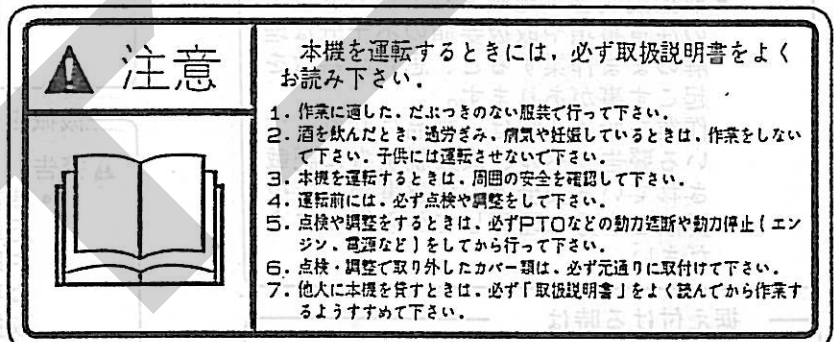 注意
本機を運転するときには、必ず取扱説明書をよく
お読み下さい.
1. 作業に適した、だぶつきのない服装で行って下さい.
2. 酒を飲んだとき、過労ぎみ、病気や妊娠しているときは、作業をしない
で下さい. 子供には運転させないで下さい.
3. 本機を運転するときは、周囲の安全を確認して下さい.
4. 運転前には、必ず点検や調整をして下さい.
5. 点検や調整をするときは、必ずPTOなどの動力遮断や動力停止(エン
ジン、電源など)をしてから行って下さい.
6. 点検・調整で取り外したカバー類は、必ず元通りに取付けて下さい.
7. 他人に本機を貸すときは、必ず「取扱説明書」をよく読んでから作業す
るようすすめて下さい.